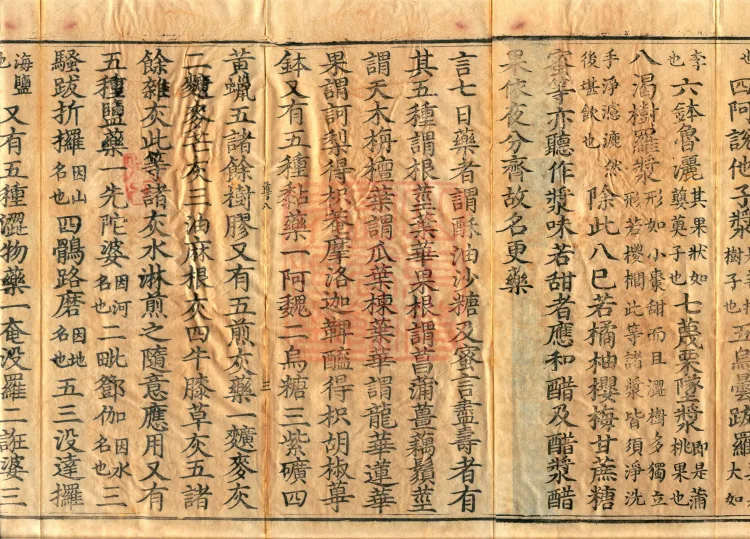 四阿說他子漿樹子五烏曇跋羅大如
李也六鉢魯灑其果狀如蘡薁子也七蔑栗墜漿即是蒲桃果也
八渴樹羅漿形如小棗甜而且澀樹多獨立形若椶櫚此等諸漿皆須淨洗
手淨濾漉然後堪飲也除此八已若橘柚櫻梅甘蔗糖
蜜等亦聽作漿味若甜者應和醋及醋漿醋
果依夜分齊故名更藥
言七日藥者謂酥油沙糖及蜜言盡壽者有
其五種謂根莖葉華果根謂菖蒲薑藕鬚莖
謂天木栴檀葉謂瓜葉楝葉華謂龍華蓮華
果謂訶梨得枳菴摩洛迦鞞醯得枳胡椒蓽
鉢又有五種黏藥一阿魏二烏糖三紫礦四
三
黃蠟五諸餘樹膠又有五煎灰藥一䵃麥灰
二䵃麥芒灰三油麻根灰四牛膝草灰五諸
餘雜灰此等諸灰水淋煎之隨意應用又有
五種鹽藥一先陀婆因河名也二毗鄧伽因水名也三
騷跋折攞因山名也四鶻路磨因地名也五三没達攞
海鹽也又有五種澀物藥一奄没羅二誑婆三